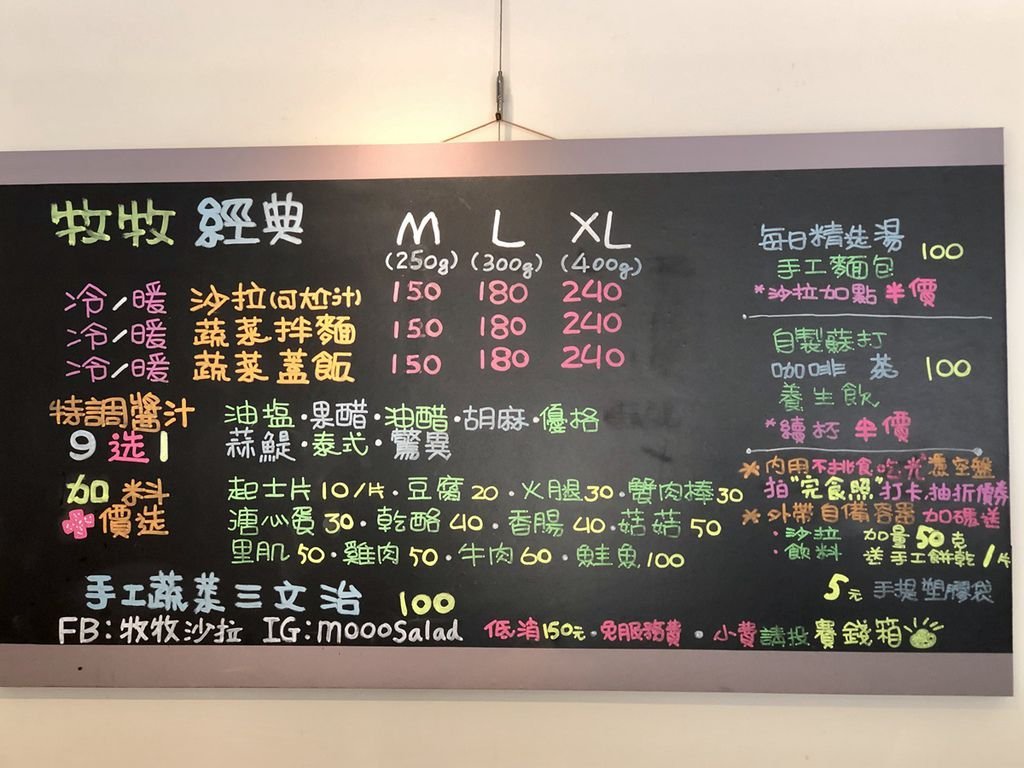 牧牧 經典 M L XL
(250g) (300g) (400g)
冷/暖 沙拉 150 180 240
冷/暖 蔬菜拌麵 150 180 240
冷/暖 蔬菜蓋飯 150 180 240
特調醬汁 油塩·果醋·油醋·胡麻·優格
9选1 蒜鯷·泰式·驚異
加料 起士片10/片·豆腐20·火腿30·蟹肉棒30
價选 溏心蛋30·乾酪40·香腸40·菇菇50
里肌50·雞肉50·牛肉60·鮭魚100
手工蔬菜三文治 100
FB:牧牧沙拉 IG:moooSalad
低消150元·免服務費·小費請投賽錢箱
每日精选湯 100
手工麵包
*沙拉加點半價
自製蘇打
咖啡 茶 100
養生飲
*續杯半價
内用不挑食吃光憑空盤
拍"完食照"打卡.抽折價券
外帶自備容器 加碼送
·沙拉 加量50克
·飲料 送手工餅乾1片
5元 手提塑膠袋